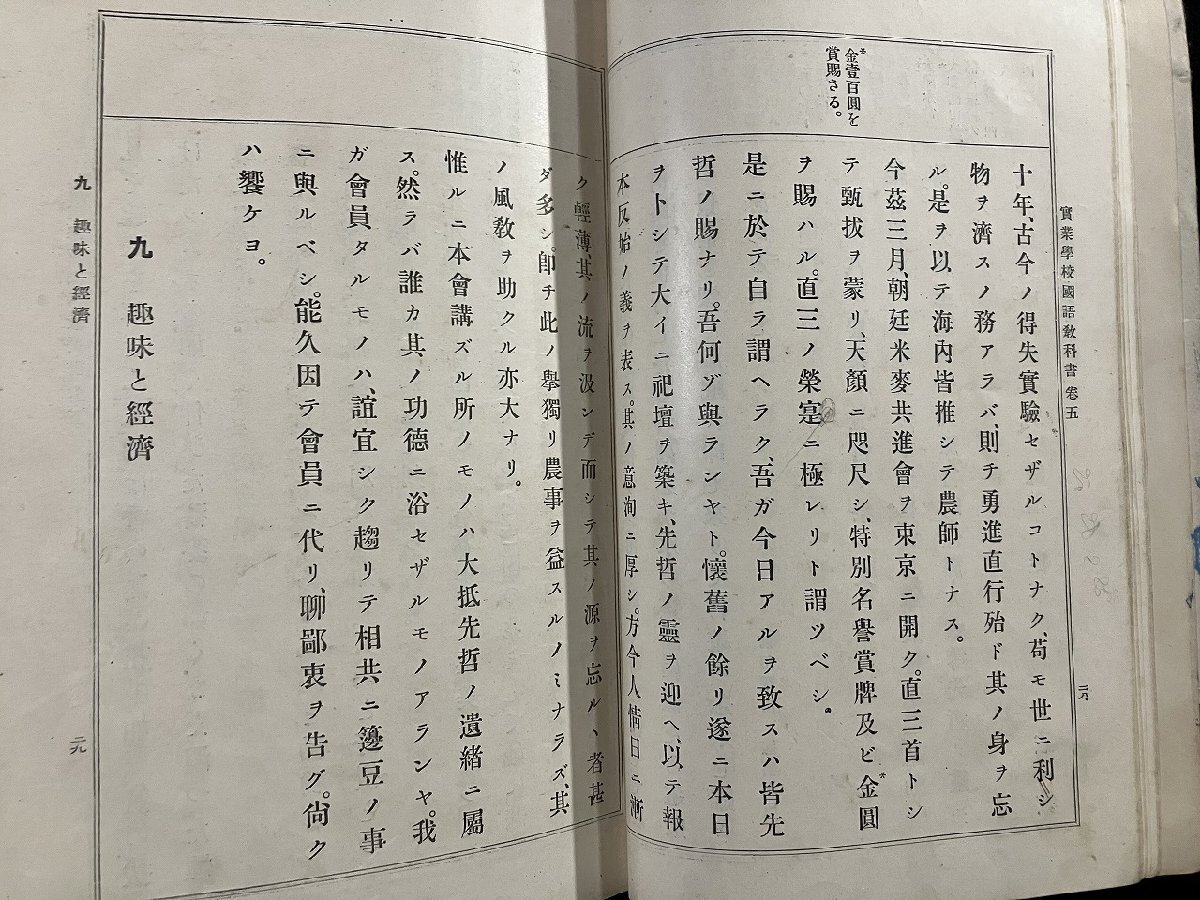 實業學校國語敎科書 卷五
*金壹百圓を
賞賜さる。
十年、古今ノ得失實驗セザルコトナク、苟モ世ニ利シ
物ヲ濟スノ務アラバ、則チ勇進直行殆ド其ノ身ヲ忘
ル。是ヲ以テ海內皆推シテ農師トナス。
今茲三月、朝廷米麥共進會ヲ東京ニ開ク。直三首トシ
テ甄拔ヲ蒙リ、天顏ニ咫尺シ、特別名譽賞牌及ビ*金圓
ヲ賜ハル。直三ノ榮寔ニ極レリト謂ツベシ。
是ニ於テ自ラ謂ヘラク、吾ガ今日アルヲ致スハ皆先
哲ノ賜ナリ。吾何ゾ與ランヤト。懷舊ノ餘リ遂ニ本日
ヲトシテ大イニ祀壇ヲ築キ、先哲ノ靈ヲ迎ヘ、以テ報
本反始ノ義ヲ表ス。其ノ意洵ニ厚シ。方今人情日ニ漸
ク輕薄、其ノ流ヲ汲ンデ而シテ其ノ源ヲ忘ルヽ者甚
ダ多シ。卽チ此ノ擧獨リ農事ヲ益スルノミナラズ、其
ノ風敎ヲ助クル亦大ナリ。
惟ルニ本會講ズル所ノモノハ大抵先哲ノ遺緖ニ屬
ス。然ラバ誰カ其ノ功德ニ浴セザルモノアランヤ。我
ガ會員タルモノハ、誼宜シク趨リテ相共ニ籩豆ノ事
ニ與ルベシ。能久因テ會員ニ代リ、聊鄙衷ヲ告グ。尙ク
ハ饗ケヨ。
九 趣味と經濟
九 趣味と經濟
二九